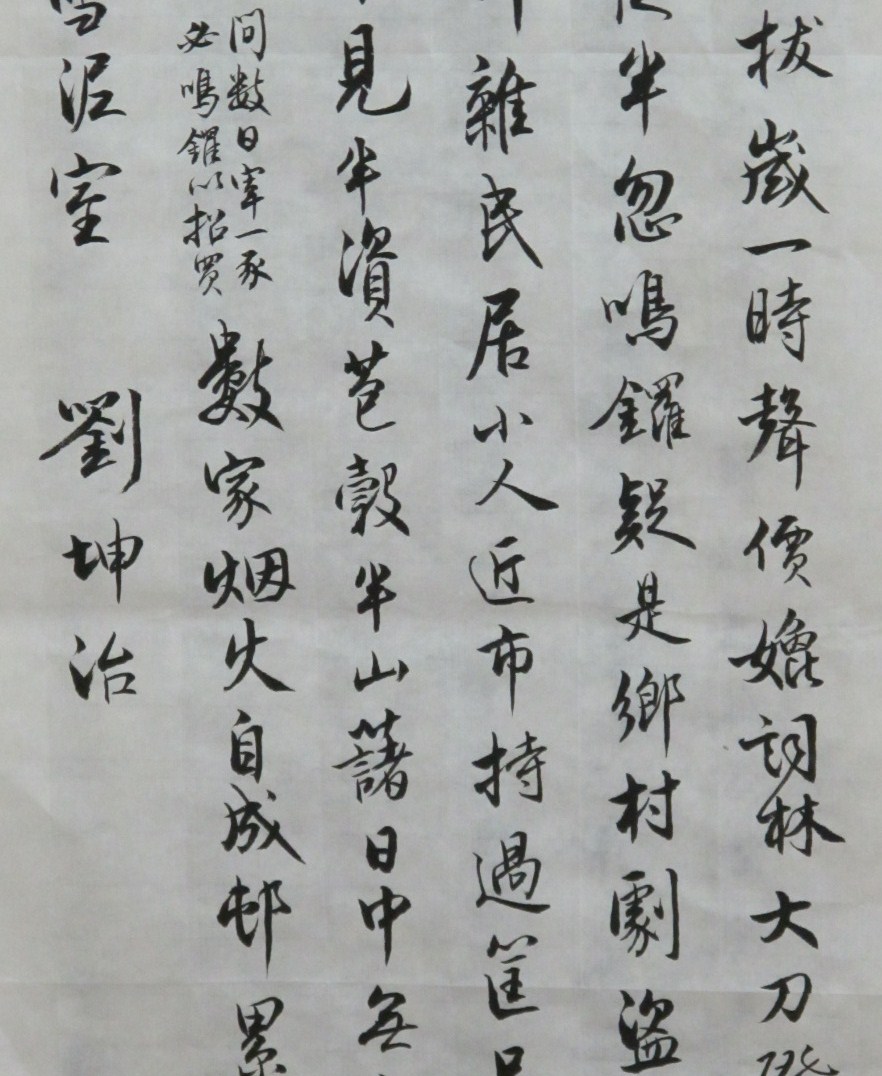 拔崴一時聲價媲詞林大刀
半忽鳴鑼疑是鄉村劇盜
雜民居小人近市持過筐
見半資苞穀半山藷日中無
間數日宰一豕
必鳴鑼以招買
數家烟火自成邨累
雪泥室 劉坤治